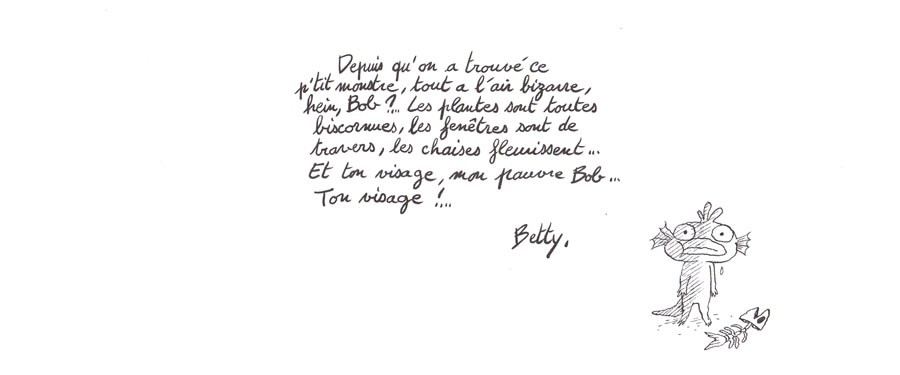 Depuis qu'on a trouvé ce
p'tit monstre, tout a l'air bizarre,
hein, Bob ?... Les plantes sont toutes
biscornues, les fenêtres sont de
travers, les chaises fleurissent...
Et ton visage, mon pauvre Bob...
Ton visage !...
Betty.